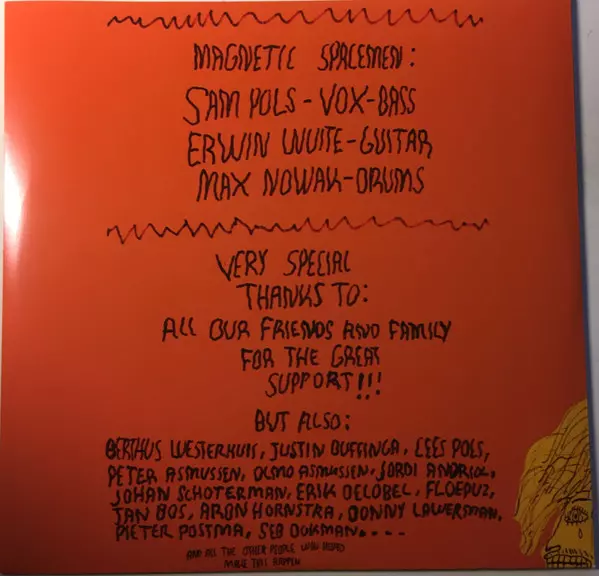 MAGNETIC SPACEMEN:
SAM POLS-VOX-BASS
ERWIN WUITE-GUITAR
MAX NOWAK-DRUMS
VERY SPECIAL
THANKS TO:
ALL OUR FRIENDS AND FAMILY
FOR THE GREAT
SUPPORT!!!
BUT ALSO:
BERTHUS WESTERHUIS, JUSTIN BUFFINGA, CEES POLS,
PETER ASMUSSEN, OLMO ASMUSSEN, JORDI ANDRIOL,
JOHAN SCHOTERMAN, ERIK DELOBEL, FLOEPUZ,
JAN BOS, ARON HORNSTRA, DONNY LAWERMAN,
PIETER POSTMA, SEB DOKMAN....
AND ALL THE OTHER PEOPLE WHO HELPED
MAKE THIS HAPPEN